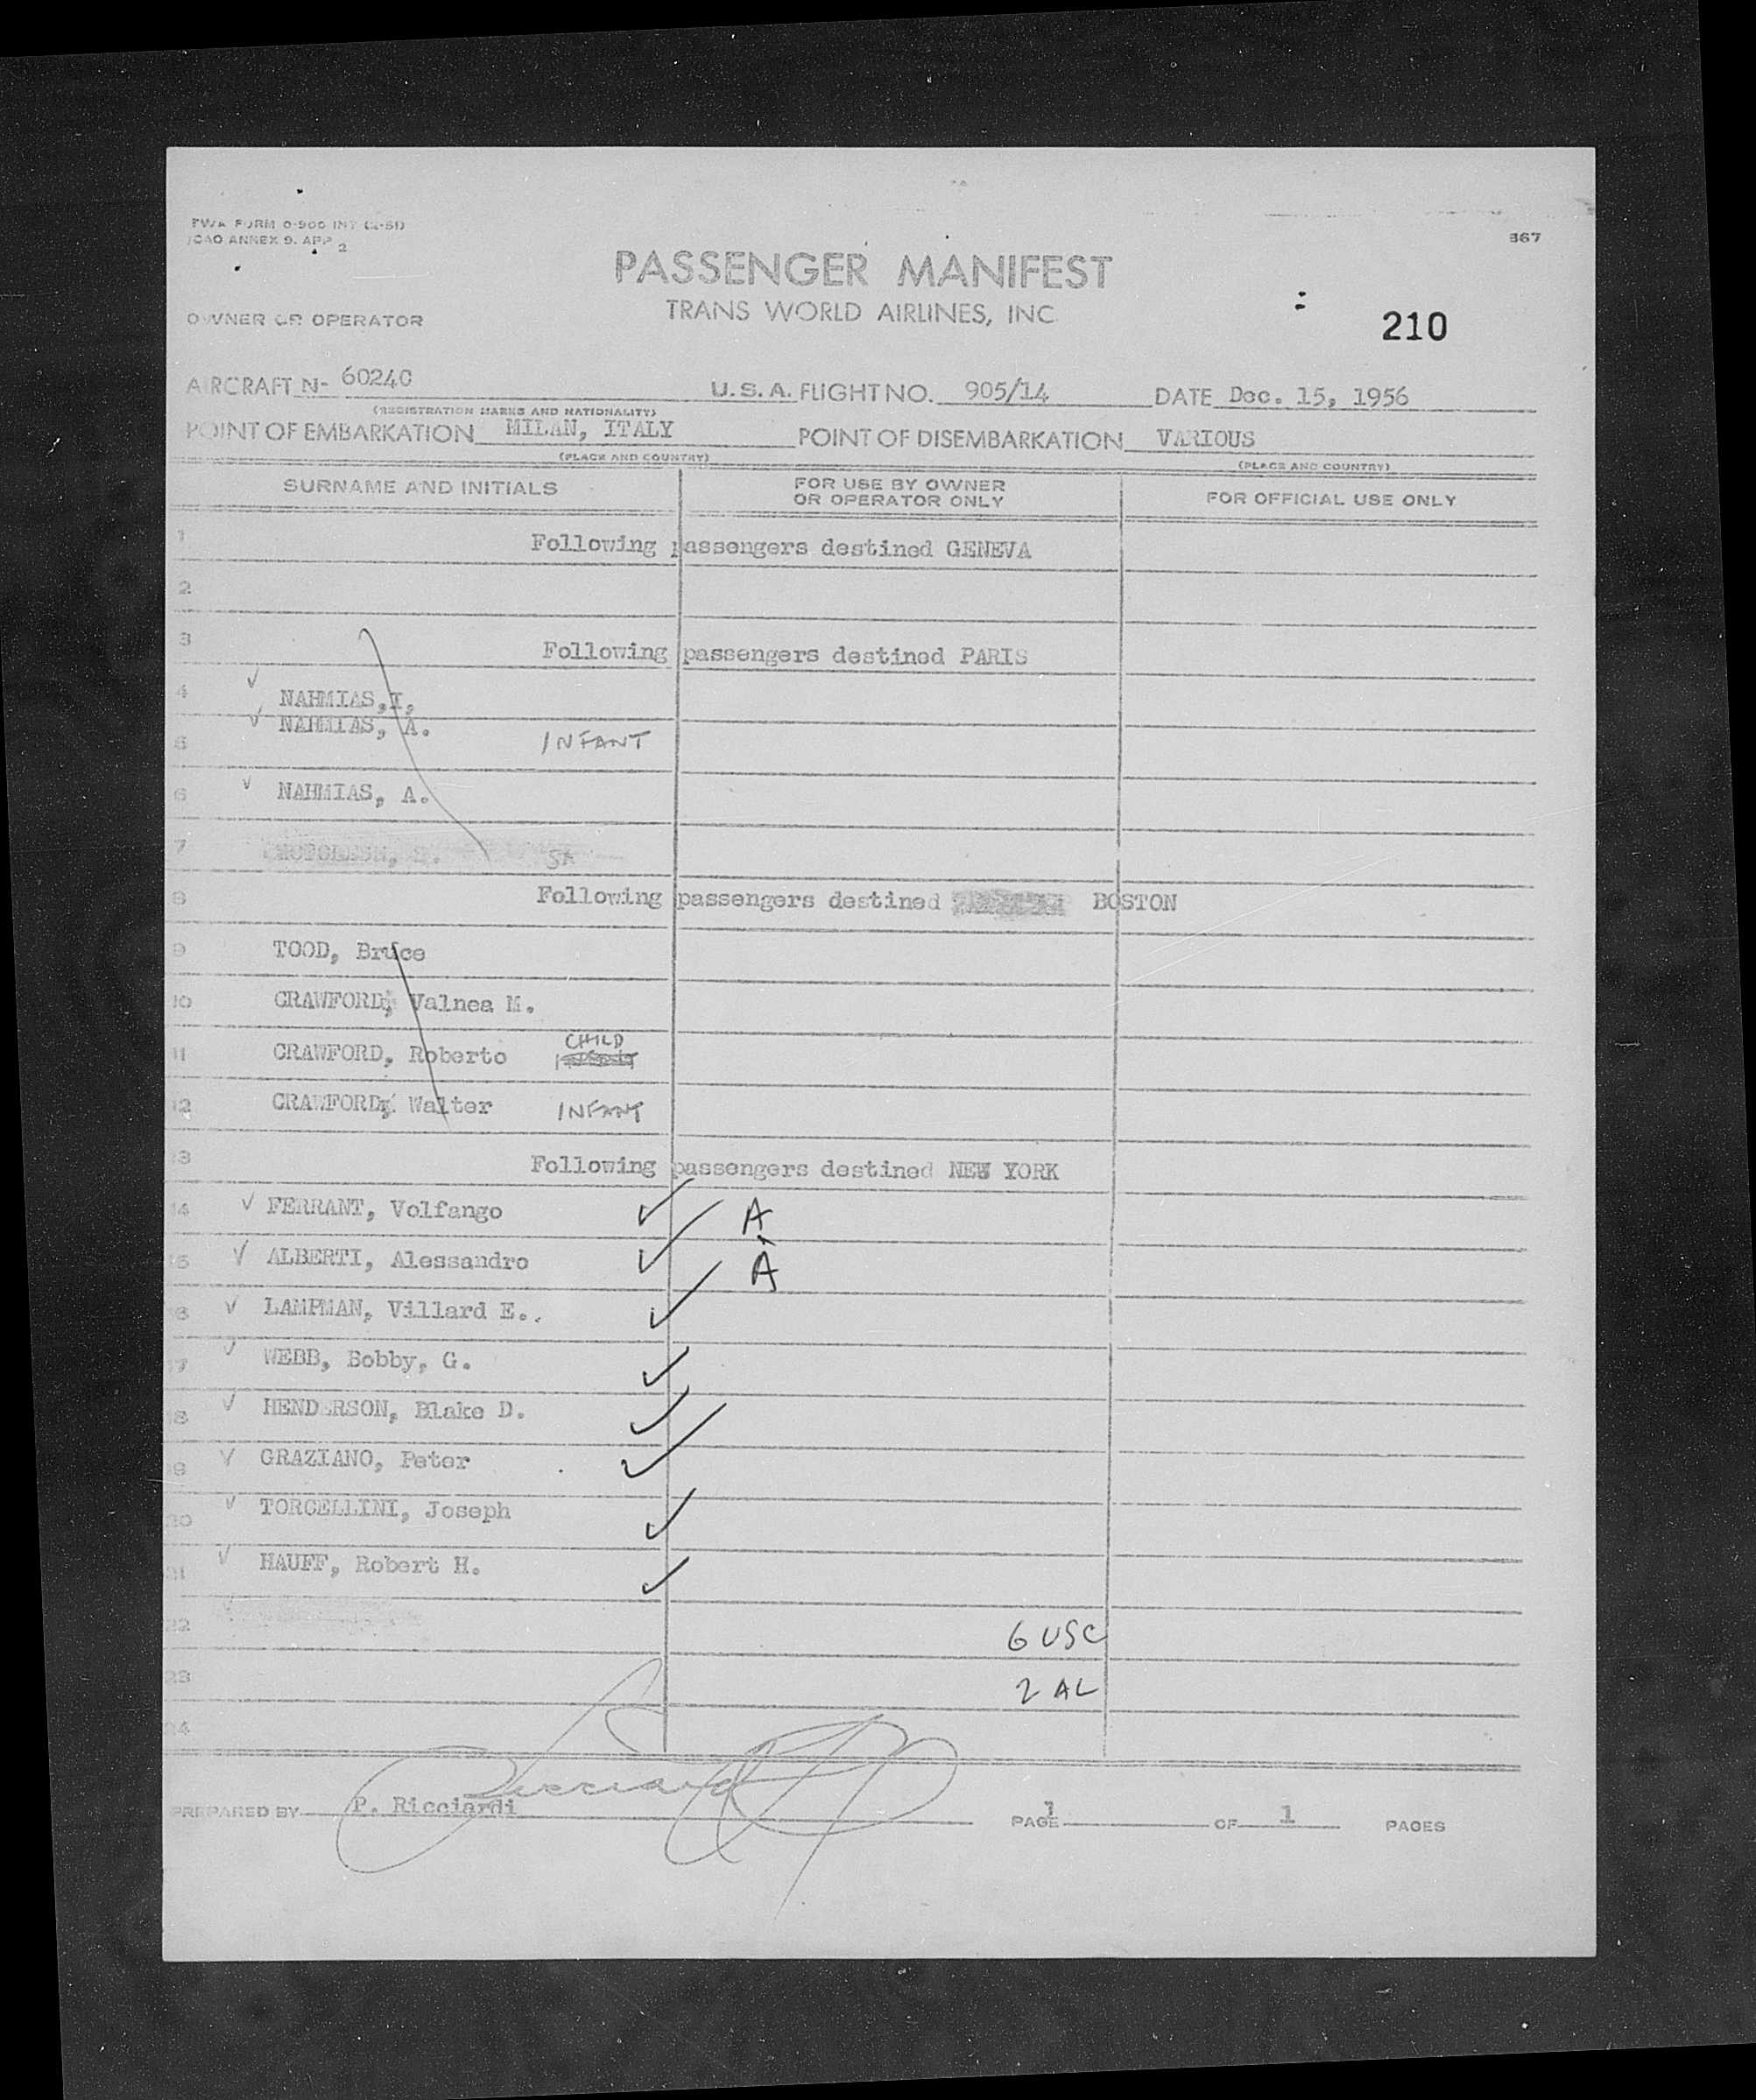 TWA FORM 0-900 INT (2-51)
ICAO ANNEX 9. APP 2
867
PASSENGER MANIFEST
OWNER OR OPERATOR
TRANS WORLD AIRLINES, INC
210
AIRCRAFT N- 60240 U.S.A. FLIGHT NO. 905/14 DATE Dec. 15, 1956
(REGISTRATION MARKS AND NATIONALITY)
POINT OF EMBARKATION MILAN, ITALY POINT OF DISEMBARKATION VARIOUS
(PLACE AND COUNTRY) (PLACE AND COUNTRY)
SURNAME AND INITIALS FOR USE BY OWNER OR OPERATOR ONLY FOR OFFICIAL USE ONLY
1 Following passengers destined GENEVA
2
3 Following passengers destined PARIS
4 ✓ NAHMIAS,I,
5 ✓ NAHMIAS, A. INFANT
6 ✓ NAHMIAS, A.
7
8 Following passengers destined BOSTON
9 TOOD, Bruce
10 CRAWFORD, Valnea M.
11 CRAWFORD, Roberto CHILD
12 CRAWFORD, Walter INFANT
13 Following passengers destined NEW YORK
14 ✓ FERRANT, Volfango ✓ A
15 ✓ ALBERTI, Alessandro ✓ A
16 ✓ LAMPMAN, Villard E.. ✓
17 ✓ WEBB, Bobby, G. ✓
18 ✓ HENDERSON, Blake D. ✓
19 ✓ GRAZIANO, Peter ✓
20 ✓ TORCELLINI, Joseph ✓
21 ✓ HAUFF, Robert H. ✓
22 6 USC
23 2 AL
24
PREPARED BY P. Ricciardi PAGE 1 OF 1 PAGES